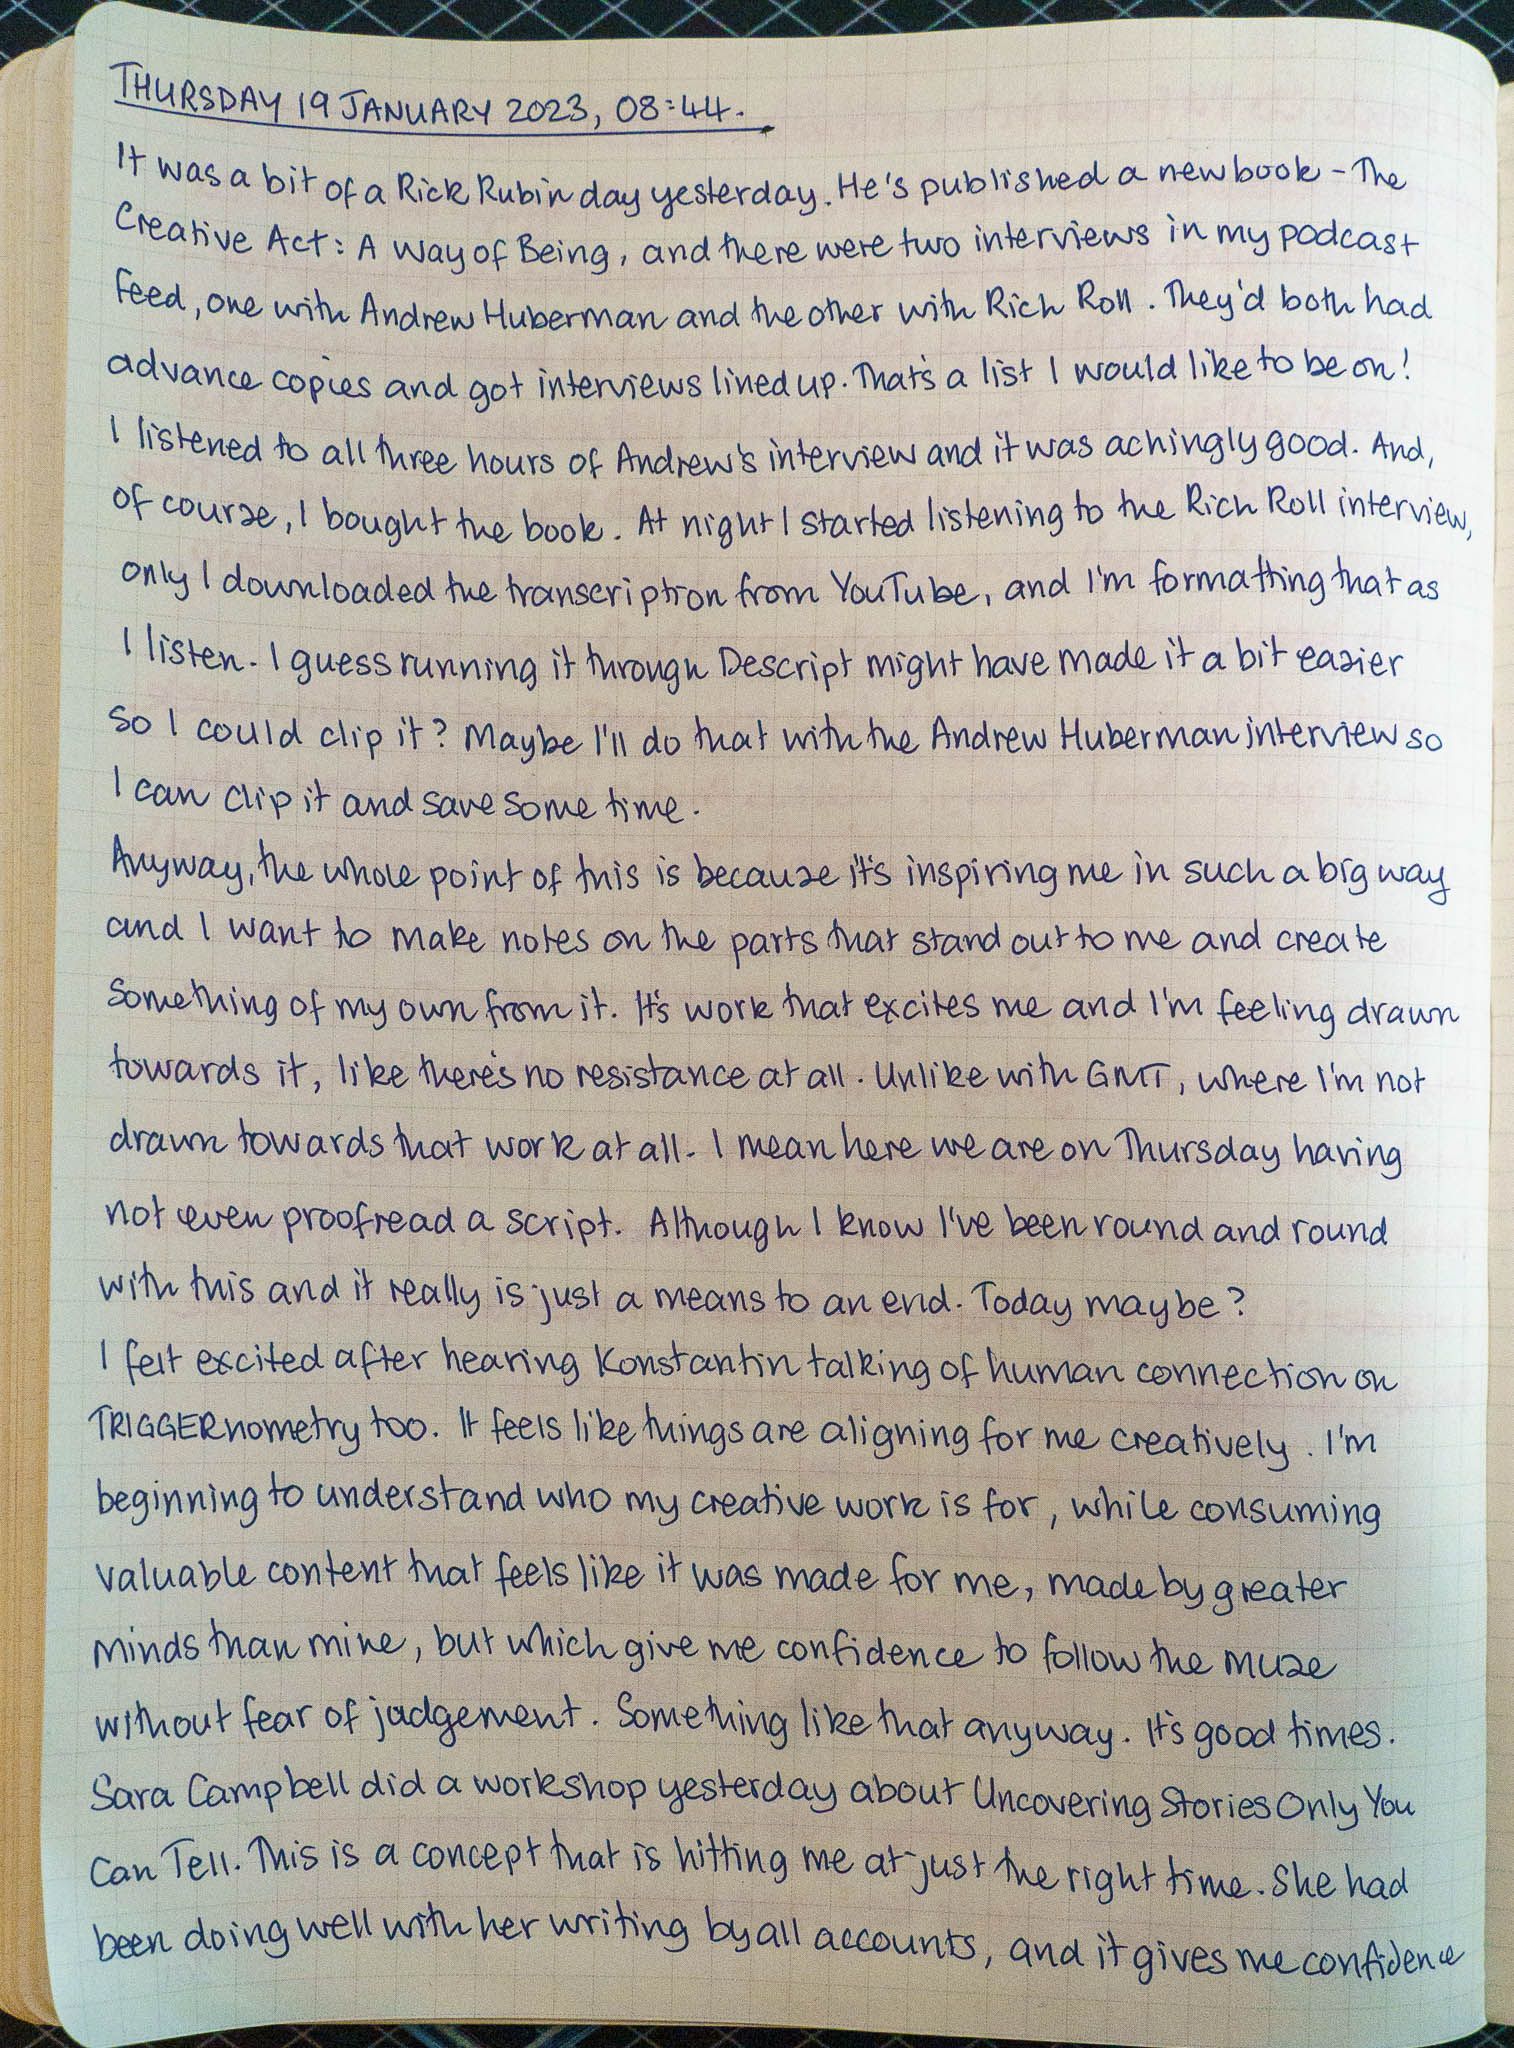 THURSDAY 19 JANUARY 2023, 08:44.
It was a bit of a Rick Rubin day yesterday. He's published a new book - The
Creative Act: A Way of Being, and there were two interviews in my podcast
feed, one with Andrew Huberman and the other with Rich Roll. They'd both had
advance copies and got interviews lined up. That's a list I would like to be on!
I listened to all three hours of Andrew's interview and it was achingly good. And,
of course, I bought the book. At night I started listening to the Rich Roll interview,
only I downloaded the transcription from YouTube, and I'm formatting that as
I listen. I guess running it through Descript might have made it a bit easier
so I could clip it? Maybe I'll do that with the Andrew Huberman interview so
I can clip it and save some time.
Anyway, the whole point of this is because it's inspiring me in such a big way
and I want to make notes on the parts that stand out to me and create
something of my own from it. It's work that excites me and I'm feeling drawn
towards it, like there's no resistance at all. Unlike with GMT, where I'm not
drawn towards that work at all. I mean here we are on Thursday having
not even proofread a script. Although I know I've been round and round
with this and it really is just a means to an end. Today maybe?
I felt excited after hearing Konstantin talking of human connection on
TRIGGERnometry too. It feels like things are aligning for me creatively. I'm
beginning to understand who my creative work is for, while consuming
valuable content that feels like it was made for me, made by greater
minds than mine, but which give me confidence to follow the muse
without fear of judgement. Something like that anyway. It's good times.
Sara Campbell did a workshop yesterday about Uncovering Stories Only You
Can Tell. This is a concept that is hitting me at just the right time. She had
been doing well with her writing by all accounts, and it gives me confidence